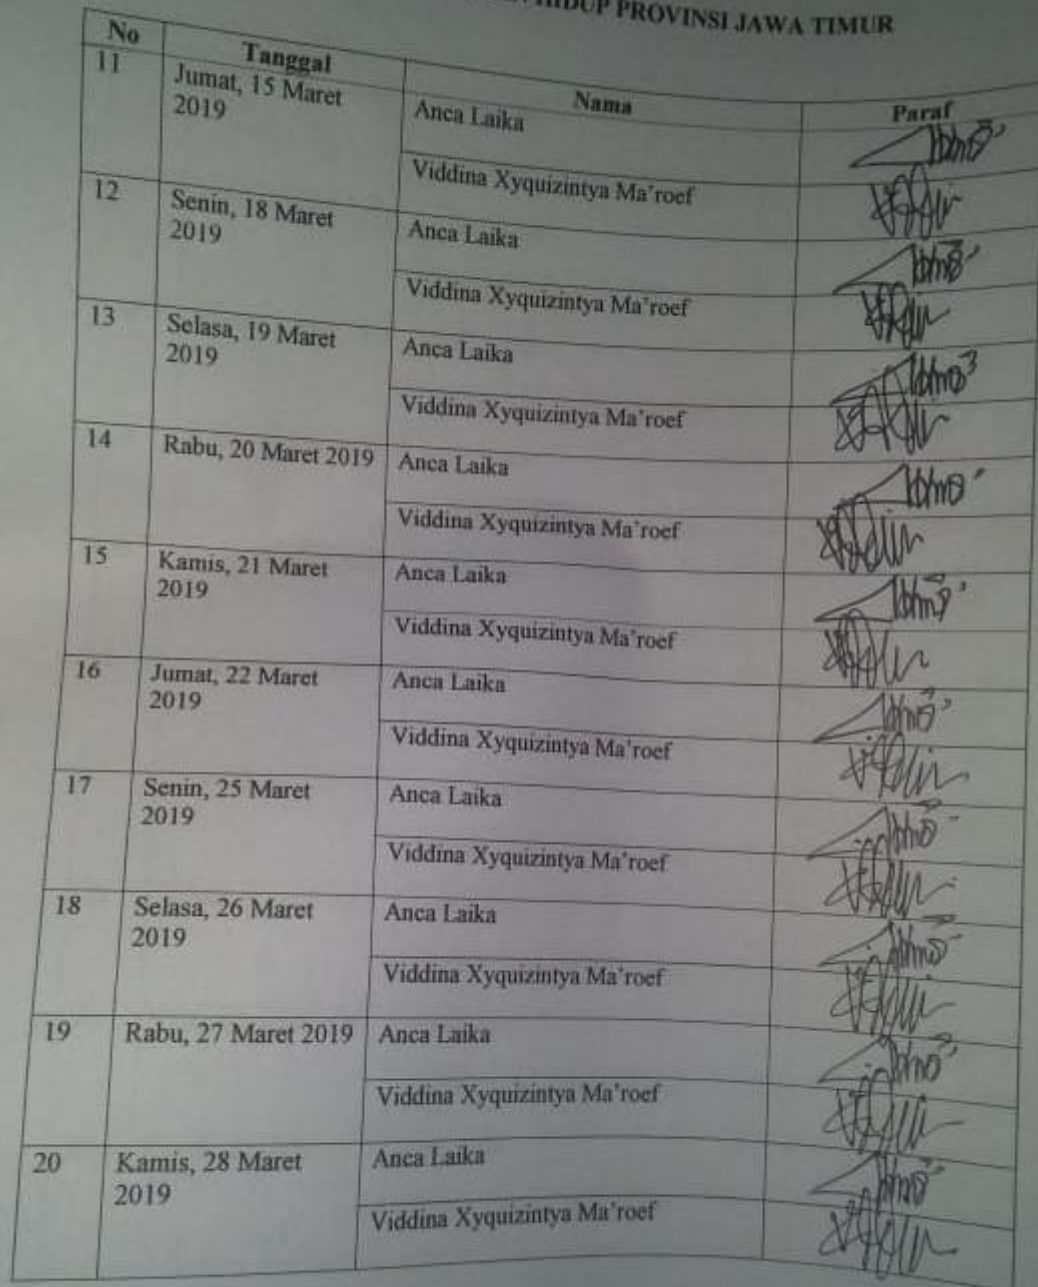 HIDUP PROVINSI JAWA TIMUR
No Tanggal Nama Paraf
11 Jumat, 15 Maret
2019
Anca Laika
Viddina Xyquizintya Ma'roef
12 Senin, 18 Maret
2019
Anca Laika
Viddina Xyquizintya Ma'roef
13 Selasa, 19 Maret
2019
Anca Laika
Viddina Xyquizintya Ma'roef
14 Rabu, 20 Maret 2019 Anca Laika
Viddina Xyquizintya Ma'roef
15 Kamis, 21 Maret
2019
Anca Laika
Viddina Xyquizintya Ma'roef
16 Jumat, 22 Maret
2019
Anca Laika
Viddina Xyquizintya Ma'roef
17 Senin, 25 Maret
2019
Anca Laika
Viddina Xyquizintya Ma'roef
18 Selasa, 26 Maret
2019
Anca Laika
Viddina Xyquizintya Ma'roef
19 Rabu, 27 Maret 2019 Anca Laika
Viddina Xyquizintya Ma'roef
20 Kamis, 28 Maret
2019
Anca Laika
Viddina Xyquizintya Ma'roef